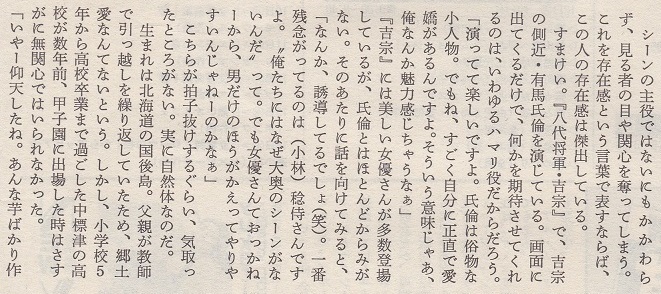 シーンの主役ではないにもかかわら
ず、見る者の目や関心を奪ってしまう。
これを存在感という言葉で表すならば、
この人の存在感は傑出している。
すまけい。『八代将軍・吉宗』で、吉宗
の側近・有馬氏倫を演じている。画面に
出てくるだけで、何かを期待させてくれ
るのは、いわゆるハマリ役だからだろう。
「演ってて楽しいですよ。氏倫は俗物な
小人物。でもね、すごく自分に正直で愛
嬌があるんですよ。そういう意味じゃあ、
俺なんか魅力感じちゃうなぁ」
『吉宗』には美しい女優さんが多数登場
しているが、氏倫とはほとんどからみが
ない。そのあたりに話を向けてみると、
「なんか、誘導してるでしょ(笑)。一番
残念がってるのは(小林)稔侍さんです
よ。〝俺たちにはなぜ大奥のシーンがな
いんだ〟って。でも女優さんておっかね
ーから、男だけのほうがかえってやりや
すいんじゃねーのかなぁ」
こちらが拍子抜けするぐらい、気取っ
たところがない。実に自然体なのだ。
生まれは北海道の国後島。父親が教師
で引っ越しを繰り返していたため、郷土
愛なんてないという。しかし、小学校5
年から高校卒業まで過ごした中標津の高
校が数年前、甲子園に出場した時はさす
がに無関心ではいられなかった。
「いやー仰天したね。あんな芋ばかり作